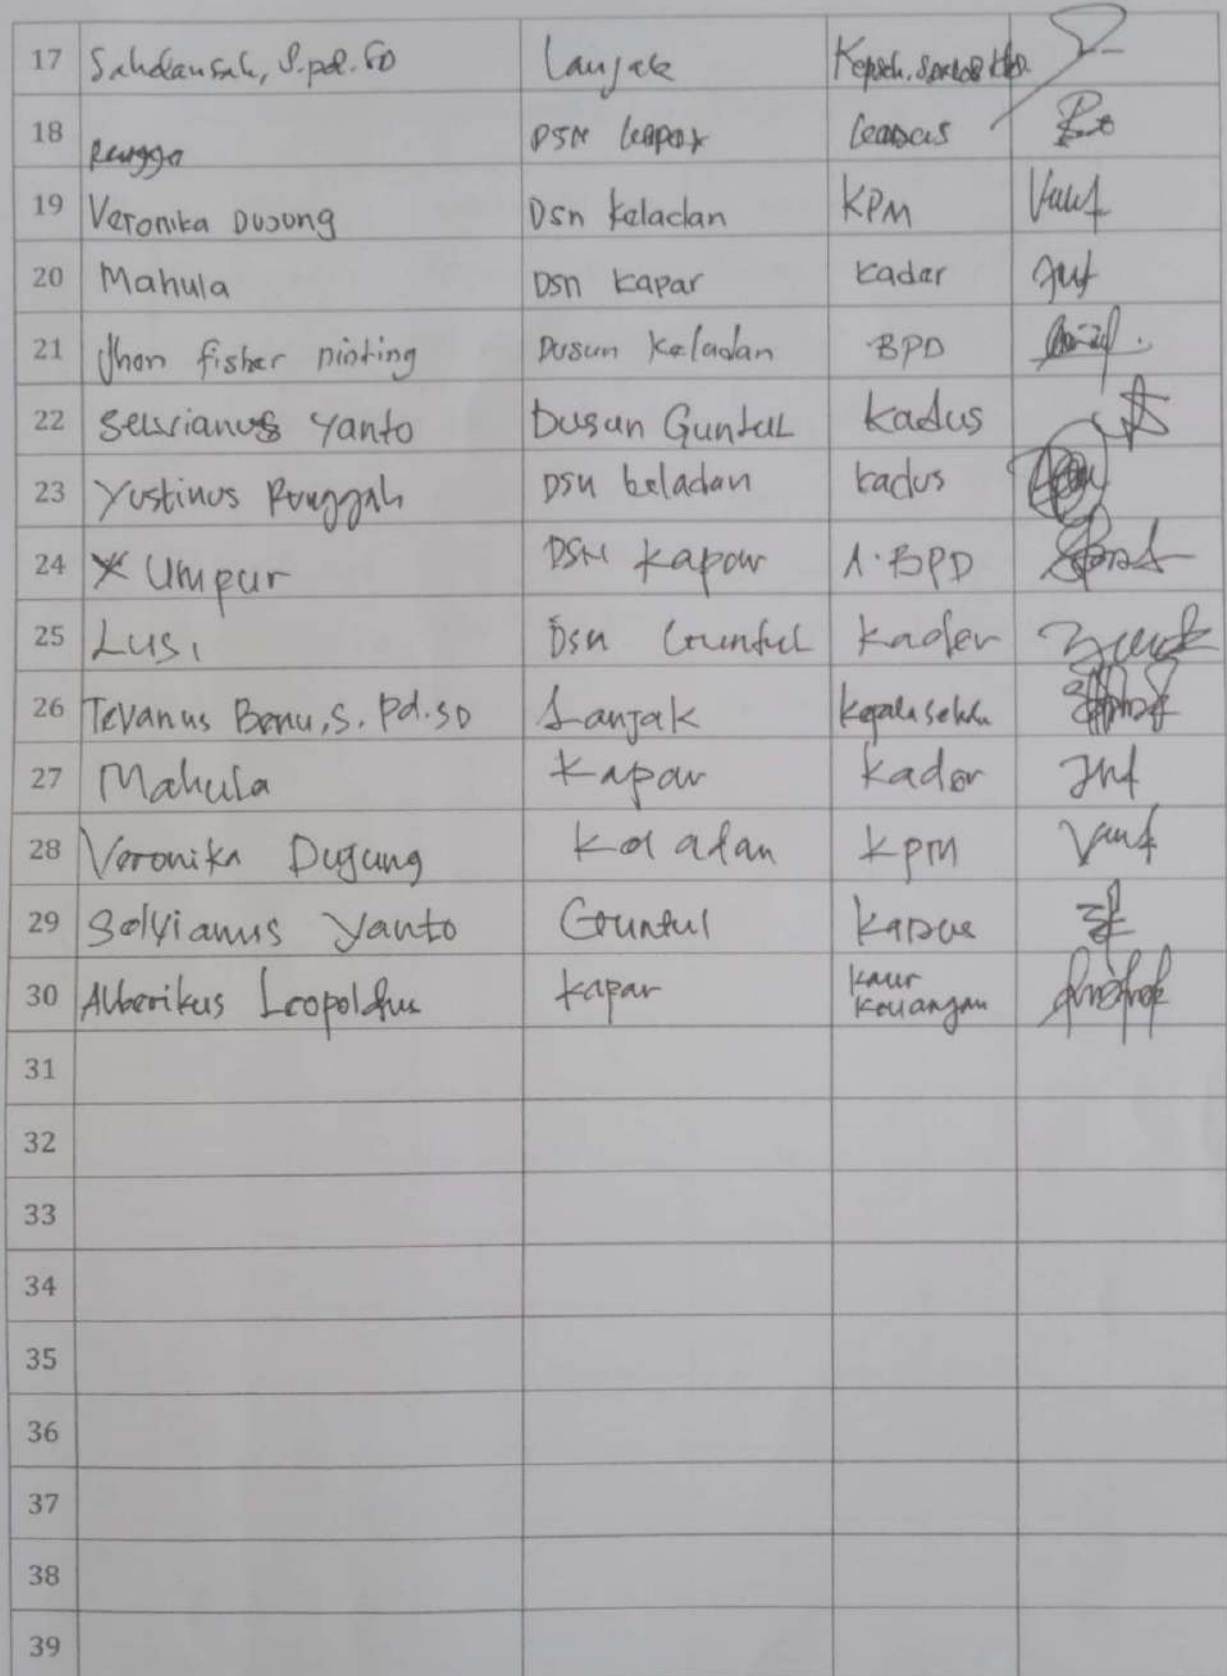 17 Sahdansah, S.pd.SD Lanjak Kepsek.
18 Rengga DSN kapar kadus
19 Veronika Dujung Dsn Keladan KPM
20 Mahula Dsn Kapar Kader
21 Jhon fisher ninting Dusun Keladan BPD
22 Selvianus Yanto Dusun Guntul Kadus
23 Yustinus Renggah DSN keladan kadus
24 Umpur DSN Kapar A.BPD
25 Lusi Dsn Guntul Kader
26 Tevanus Banu, S.Pd.SD Lanjak Kepala sekolah
27 Mahula Kapar Kader
28 Veronika Dujung Keladan KPM
29 Selvianus Yanto Guntul Kadus
30 Alberikus Leopoldus Kapar Kaur
Keuangan
31
32
33
34
35
36
37
38
39